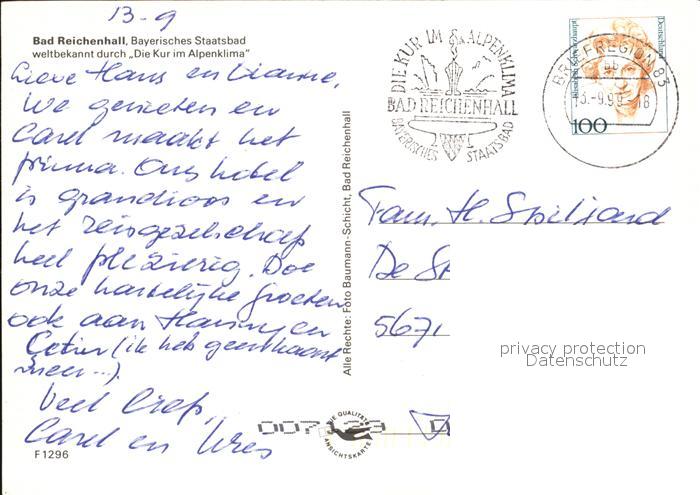 13-9
Bad Reichenhall, Bayerisches Staatsbad
weltbekannt durch „Die Kur im Alpenklima"
Lieve Hans en Dianne,
We genieten en
Carel maakt het
prima. Ons hotel
is grandioos en
het reisgezelschap
heel plezierig. Doe
onze hartelijke groeten
ook aan Hanny en
(ik heb geen kaart
meer...).
Veel liefs,
Carel en
F1296
Alle Rechte: Foto Baumann-Schicht, Bad Reichenhall
DIE KUR IM ALPENKLIMA
BAD REICHENHALL
BAYERISCHES STAATSBAD
BRIEFREGION 83
Deutsche
100
Fam. H.
De St
5671
privacy protection
Datenschutz
007123
DIE QUALITÄTS
ANSICHTSKARTE